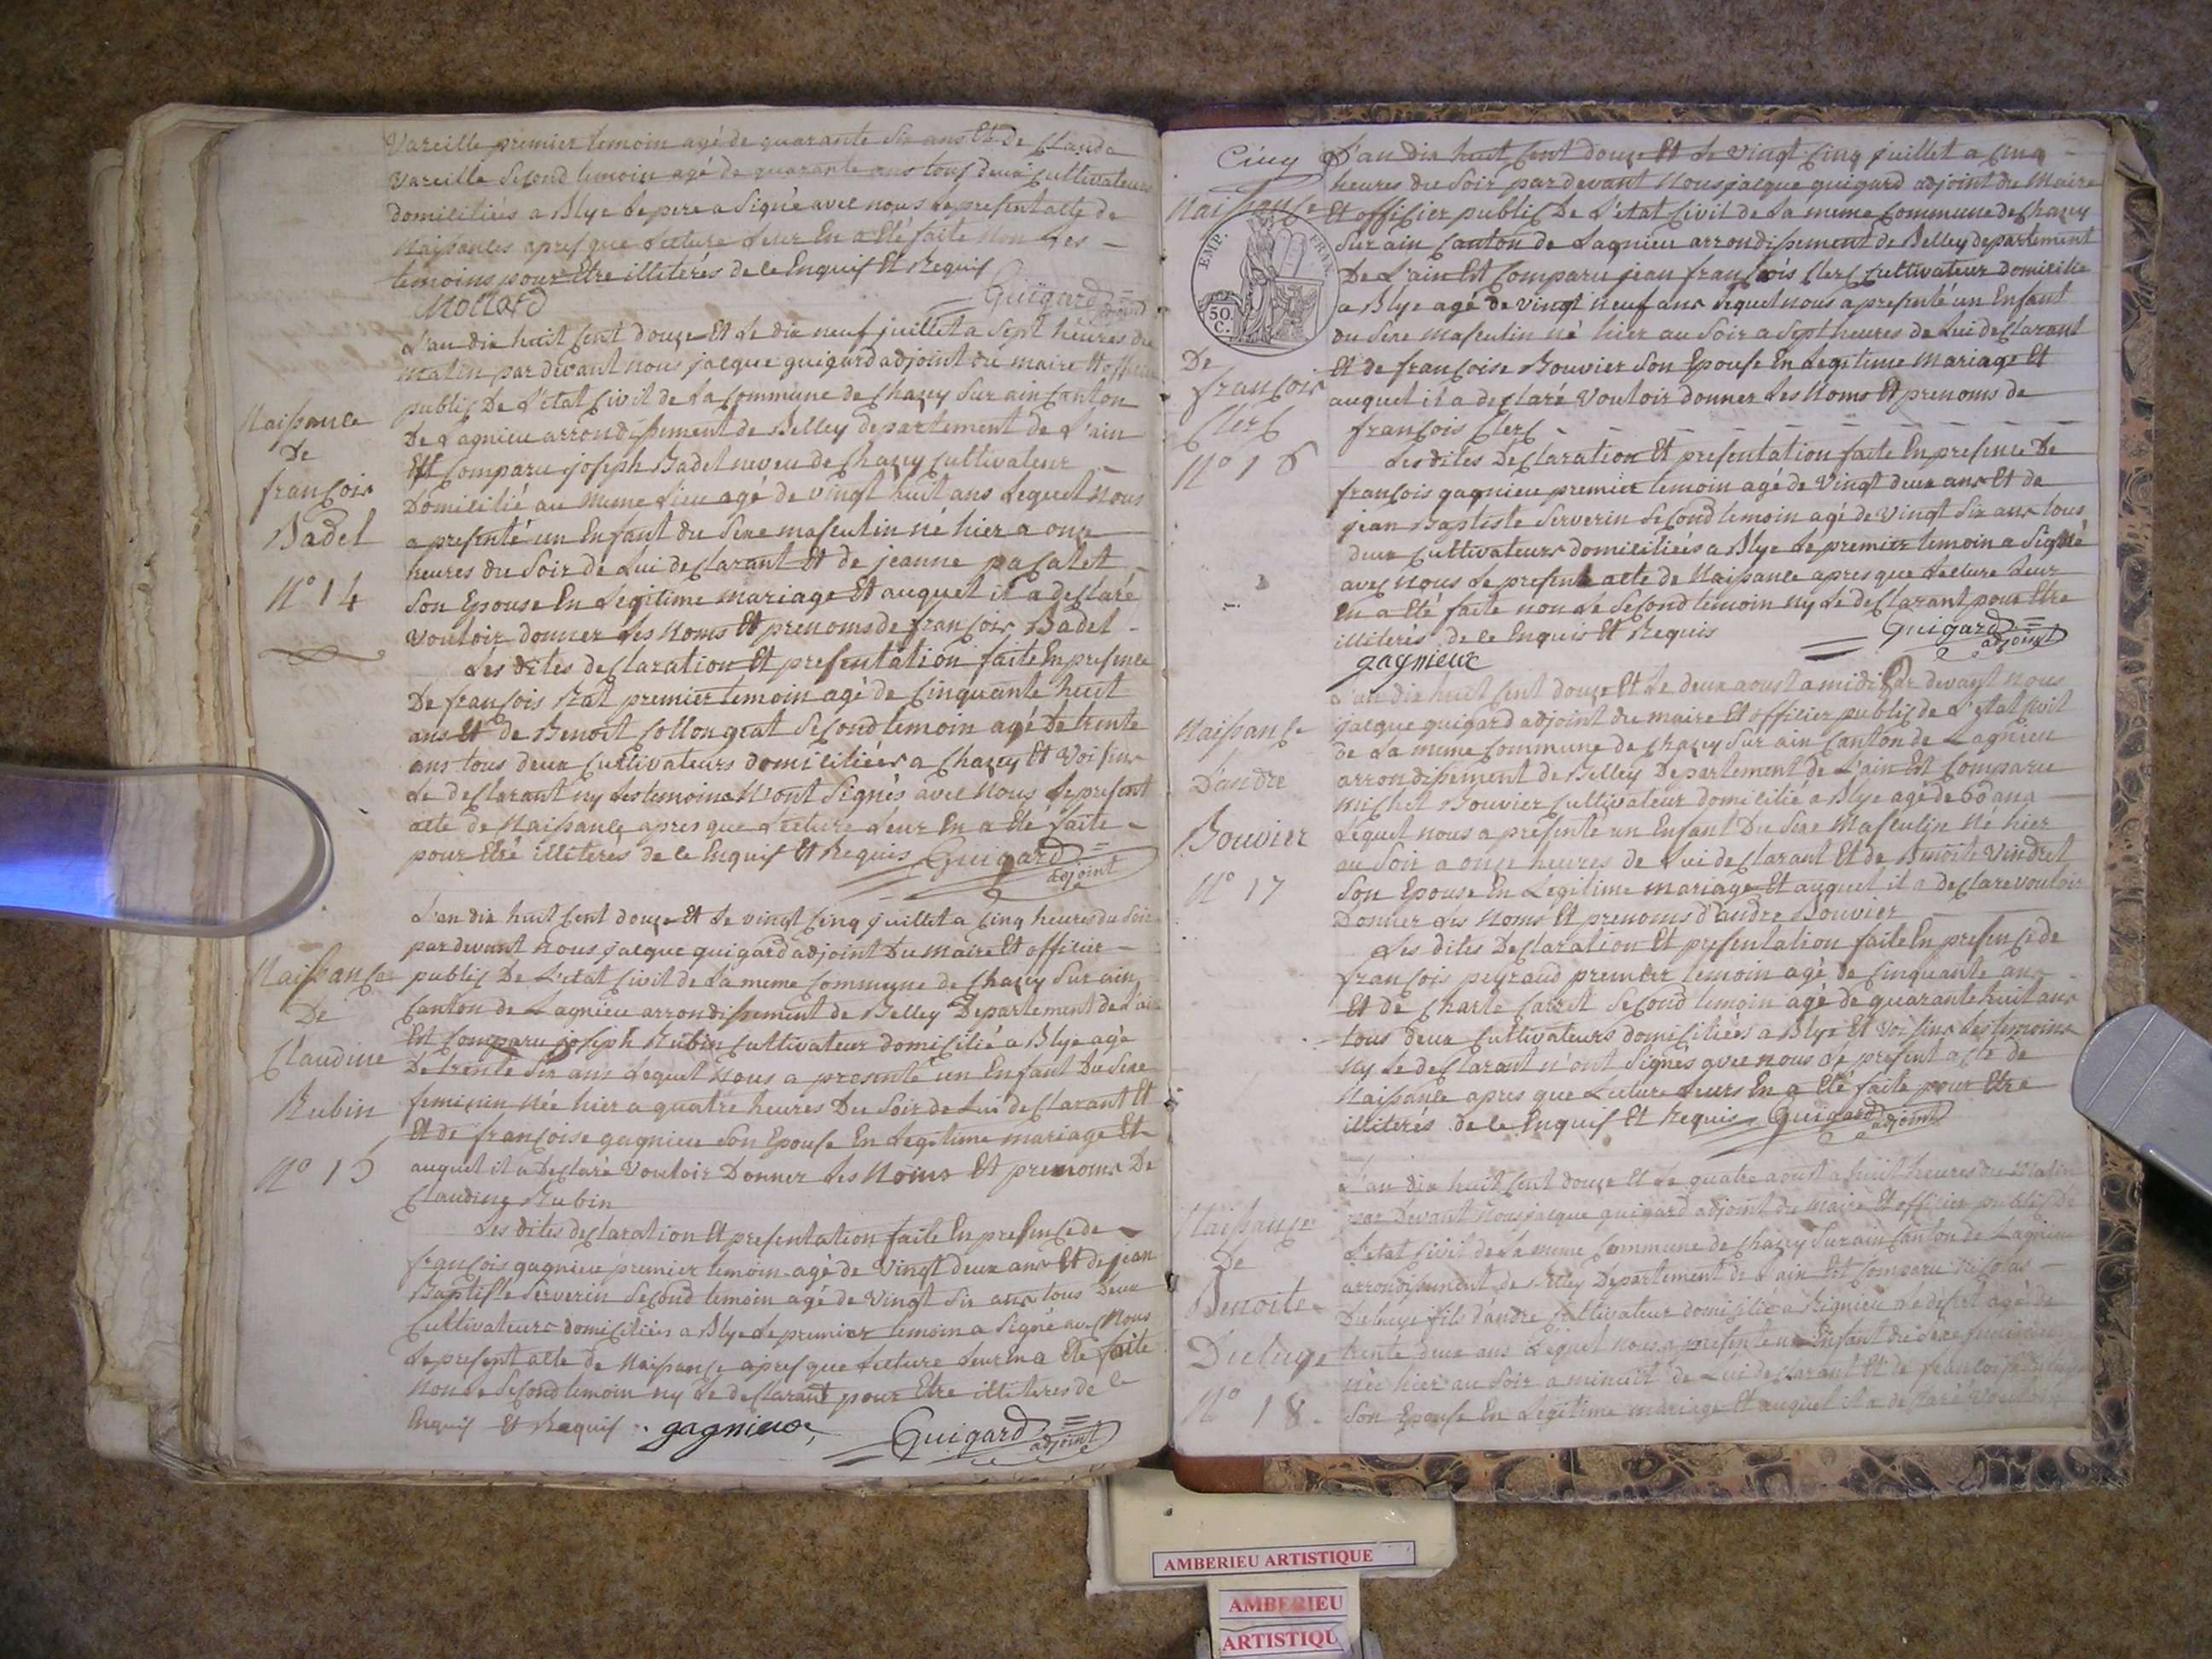 Vareille premier temoin agé de quarante six ans Et de Claude
Vareille second temoin agé de quarante ans tous deux Cultivateurs
domiciliés a Blye le pere a Signé avec nous le present acte de
Naissances apres que Lecture Leur En a Eté faite Non Les -
temoins pour Etre illiterés de le Enquis Et Requis
Mollard
Guigard adjoint
L'an dix huit Cent douze Et Le dix neuf juillet a Sept heures du
matin par devant nous jacque guigard adjoint du maire Et officier
public De L'etat Civil de La Commune de Chazey Sur ain Canton
De Lagnieu arrondissement de Belley departement de L'ain
Est Comparu joseph Badel neveu de Chazey Cultivateur
Domicilié au meme Lieu agé de vingt huit ans Lequel Nous
a presenté un Enfant du Sexe masculin né hier a onze
heures du Soir de Lui declarant Et de jeanne pacalet
Son Epouse En Legitime mariage Et auquel il a declaré
Vouloir donner les Noms Et prenoms de françois Badel -
Naissance
De
françois
Badel
N° 14
Les dites declaration Et presentation faite En presence
De françois Rat premier temoin agé de Cinquante huit
ans Et de Benoit Collongeat Second temoin agé De trente
ans tous deux Cultivateurs domiciliées a Chazey Et Voisins
Le declarant ny Les temoins N'ont Signés avec Nous Le present
acte de Naissance apres que Lecture Leur En a Eté faite -
pour Etre illiterés de le Enquis Et Requis Guigard
adjoint
L'an dix huit Cent douze Et Le vingt Cinq juillet a Cinq heures du Soir
par devant Nous jacque guigard adjoint Du maire Et officier -
public De L'etat Civil de La meme Commune de Chazey Sur ain
Canton de Lagnieu arrondissement de Belley Departement de L'ain
Est Comparu joseph Rubin Cultivateur domicilié a Blye agé
De trente Six ans Lequel Nous a presenté un Enfant Du Sexe
feminin Née hier a quatre heures Du Soir de Lui declarant Et
Et de françoise gagnieu Son Epouse En Legitime mariage Et
auquel il a Declaré Vouloir Donner les Noms Et prenoms De
Claudine Rubin
Naissance
De
Claudine
Rubin
N° 15
Les dites declaration Et presentation faite En presence de
françois gagnieu premier temoin agé de Vingt deux ans Et de jean
Baptiste Serverin Second temoin agé de Vingt Six ans tous Deux
Cultivateurs domiciliées a Blye Le premier temoin a Signé avec Nous
Le present acte de Naissance apres que Lecture Leur En a Eté faite
Non Le Second temoin ny Le declarant pour Etre illiteres de le
Enquis Et Requis gagnieux
Guigard
adjoint
Cinq
L'an dix huit Cent douze Et Le vingt Cinq juillet a Cinq -
heures du Soir par devant Nous jacque guigard adjoint du Maire
Et officier public De L'etat Civil de La meme Commune de Chazey
Sur ain Canton de Lagnieu arrondissement de Belley departement
De L'ain Est Comparu jean françois Clerc Cultivateur domicilié
a Blye agé de vingt neuf ans Lequel nous a presenté un Enfant
du Sexe Masculin né hier au Soir a Sept heures de Lui declarant
Et de françoise Bouvier Son Epouse En Legitime Mariage Et
auquel il a declaré Vouloir donner Les Noms Et prenoms de
françois Clerc
Naissance
EMP. FRAN.
50 C.
De
françois
Clerc
N° 16
Les dites Declaration Et presentation faite En presence De
françois gagnieu premier temoin agé de Vingt deux ans Et de
jean Baptiste Serverin Second temoin agé de Vingt Six ans tous
deux Cultivateurs domiciliées a Blye Le premier temoin a Signé
avec Nous Le present acte de Naissance apres que Lecture Leur
En a Eté faite non Le Second temoin ny Le declarant pour Etre
illiterés de le Enquis Et Requis
Guigard
adjoint
gagnieux
L'an dix huit Cent douze Et Le deux aoust a midi Par devant nous
jacque guigard adjoint du maire Et officier public de L'etat Civil
de La meme Commune de Chazey Sur ain Canton de Lagnieu
arrondissement de Belley Departement de L'ain Est Comparu
Michel Bouvier Cultivateur domicilié a Blye agé de 60 ans
Lequel nous a presenté un Enfant Du Sexe Masculin Né hier
au Soir a onze heures de Lui declarant Et de Benoite Vindret
Son Epouse En Legitime mariage Et auquel il a declaré vouloir
Donner Les Noms Et prenoms d'andre Bouvier
Naissance
D'andre
Bouvier
N° 17
Les dites Declaration Et presentation faite En presence de
françois peyraud premier temoin agé de Cinquante ans -
Et de Charle Second temoin agé de quarante huit ans
tous deux Cultivateurs domiciliées a Blye Et Voisins Les temoins
ny Le declarant n'ont Signés avec nous Le present acte de
Naissance apres que Lecture Leurs En a Eté faite pour Etre
illiterés de le Enquis Et Requis Guigard adjoint
L'an dix huit Cent douze Et Le quatre aoust a huit heures du Matin
par Devant Nous jacque guigard adjoint du maire Et officier public De
L'etat Civil de La meme Commune de Chazey Sur ain Canton de Lagnieu
arrondissement de Belley Departement de L'ain Est Comparu Nicolas -
Deluye fils d'andre Cultivateur domicilié a Rignieu Le desert agé de
trente deux ans Lequel nous a presenté un Enfant du Sexe feminin
Née hier au Soir a minuit de Lui declarant Et de françoise
Son Epouse En Legitime mariage Et auquel il a declaré Vouloir
Naissance
De
Benoite
Deluye
N° 18.
AMBERIEU ARTISTIQUE
AMBERIEU
ARTISTIQU